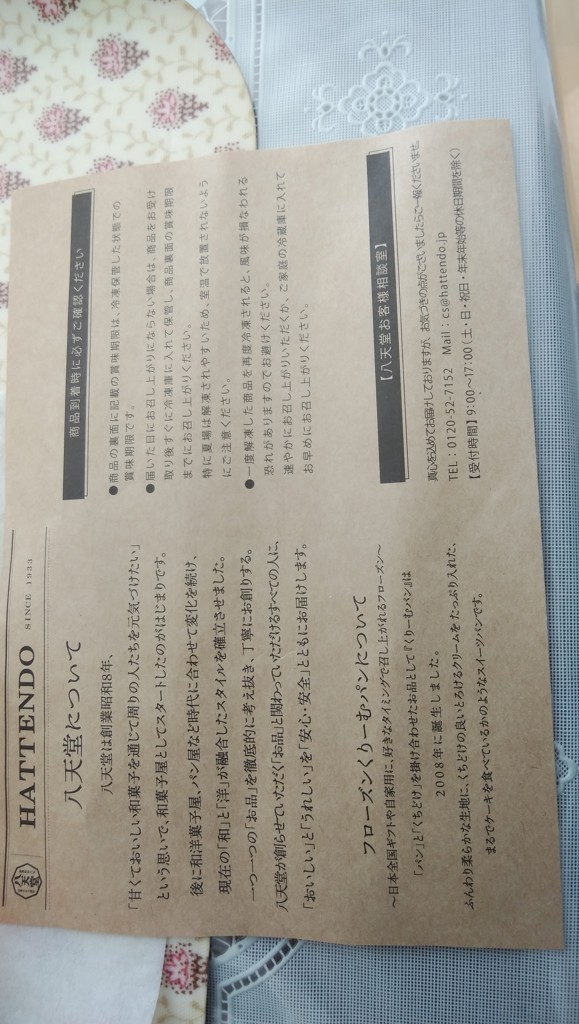 八天堂
HATTENDO
SINCE 1933
八天堂について
八天堂は創業昭和8年、
「甘くておいしい和菓子を通じて周りの人たちを元気づけたい」
という思いで、和菓子屋としてスタートしたのがはじまりです。
後に和洋菓子屋、パン屋など時代に合わせて変化を続け、
現在の「和」と「洋」が融合したスタイルを確立させました。
一つ一つの「お品」を徹底的に考え抜き、丁寧にお創りする。
八天堂が創らせていただく「お品」と関わっていただけるすべての人に、
「おいしい」と「うれしい」を「安心・安全」とともにお届けします。
フローズンくりーむパンについて
〜日本全国ギフトや自家用に、好きなタイミングで召し上がれるフローズン〜
「パン」と「くちどけ」を掛け合わせたお品として『くりーむパン』は
2008年に誕生しました。
ふんわり柔らかな生地に、くちどけの良いとろけるクリームをたっぷり入れた、
まるでケーキを食べているかのようなスイーツパンです。
商品到着時に必ずご確認ください
●商品の裏面に記載の賞味期限は、冷凍保管した状態での
賞味期限です。
●届いた日にお召し上がりにならない場合は、商品をお受け
取り後すぐに冷凍庫に入れて保管し、商品裏面の賞味期限
までにお召し上がりください。
特に夏場は解凍されやすいため、室温で放置されないよう
にご注意ください。
●一度解凍した商品を再度冷凍されると、風味が損なわれる
恐れがありますのでお避けください。
速やかにお召し上がりいただくか、ご家庭の冷蔵庫に入れて
お早めにお召し上がりください。
【八天堂お客様相談室】
真心を込めてお届けしておりますが、お気づきの点がございましたらご一報くださいませ。
TEL：0120-52-7152 Mail：cs@hattendo.jp
【受付時間】9:00〜17:00（土・日・祝日・年末年始等の休日期間を除く）